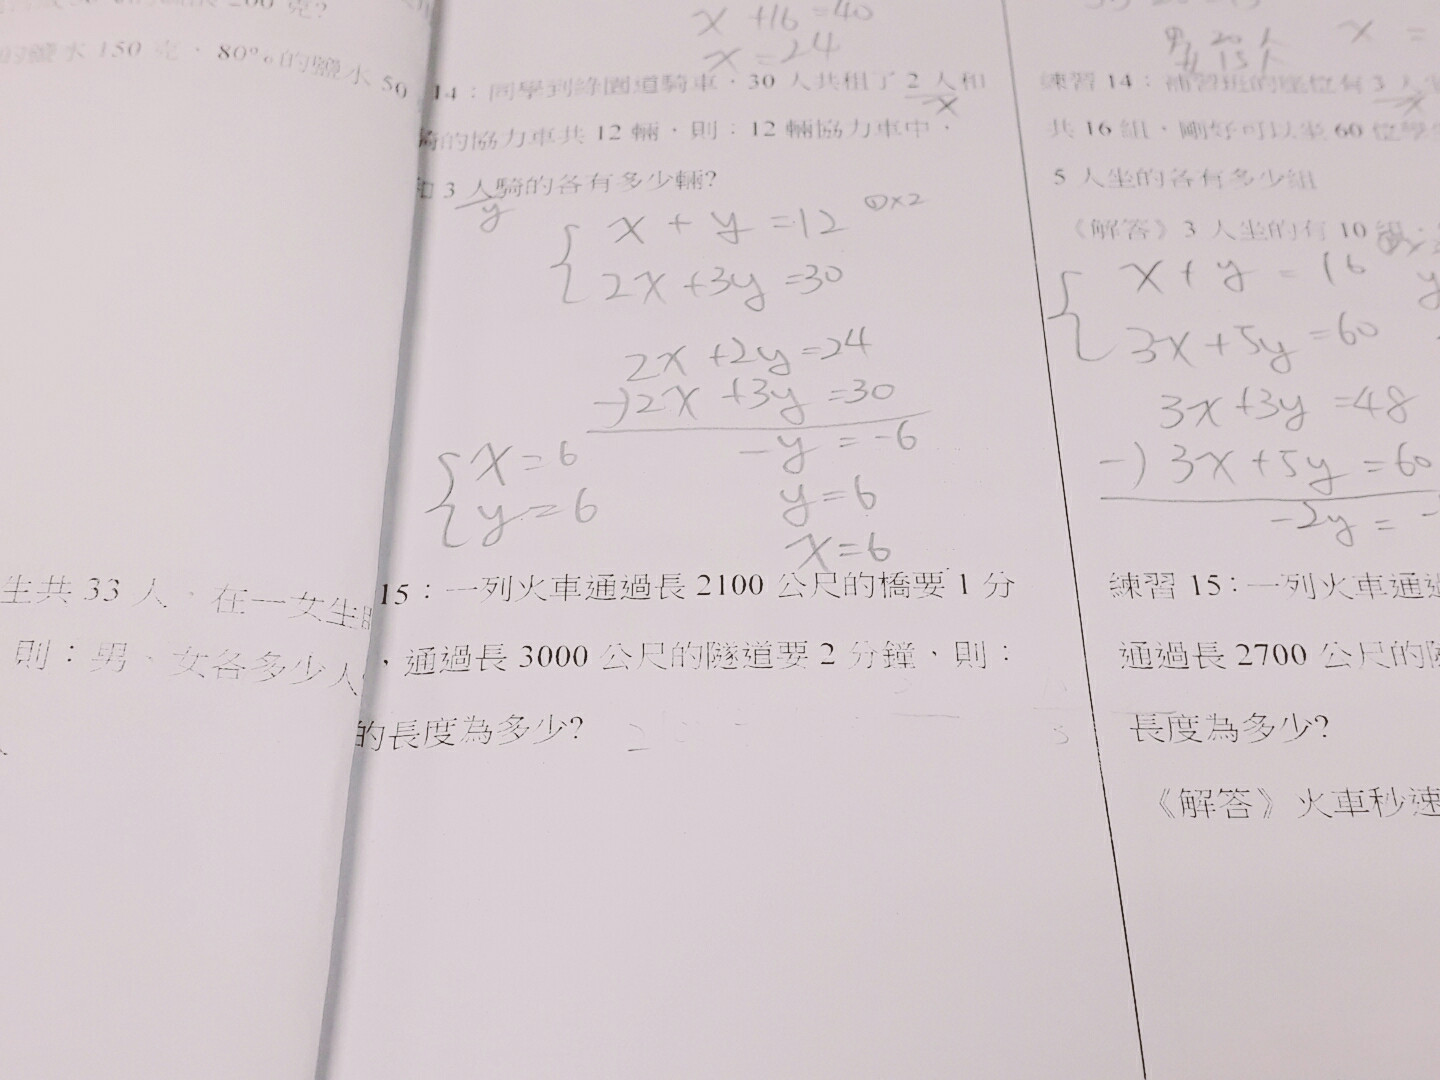 200 克?
鹽水 150 克、80%的鹽水 50
生共 33 人、在一女生
則：男、女各多少人
x +16 =40
x =24
14：同學到綠園道騎車，30 人共租了 2 人和
x
騎的協力車共 12 輛，則：12 輛協力車中，
和 3 人騎的各有多少輛?
y
x + y =12 ①×2
2x +3y =30
2x +2y =24
-)2x +3y =30
-y = -6
y =6
x =6
x = 6
y = 6
15：一列火車通過長 2100 公尺的橋要 1 分
，通過長 3000 公尺的隧道要 2 分鐘、則：
的長度為多少?
男 20 人
女 15 人
x =
練習 14：補習班的座位有 3 人坐
x
共 16 組，剛好可以坐 60 位學
5 人坐的各有多少組
《解答》3 人坐的有 10
x + y = 16
y
3x +5y =60
3x +3y =48
-) 3x +5y =60
-2y = -
練習 15：一列火車通過
通過長 2700 公尺的隧
長度為多少?
《解答》火車秒速